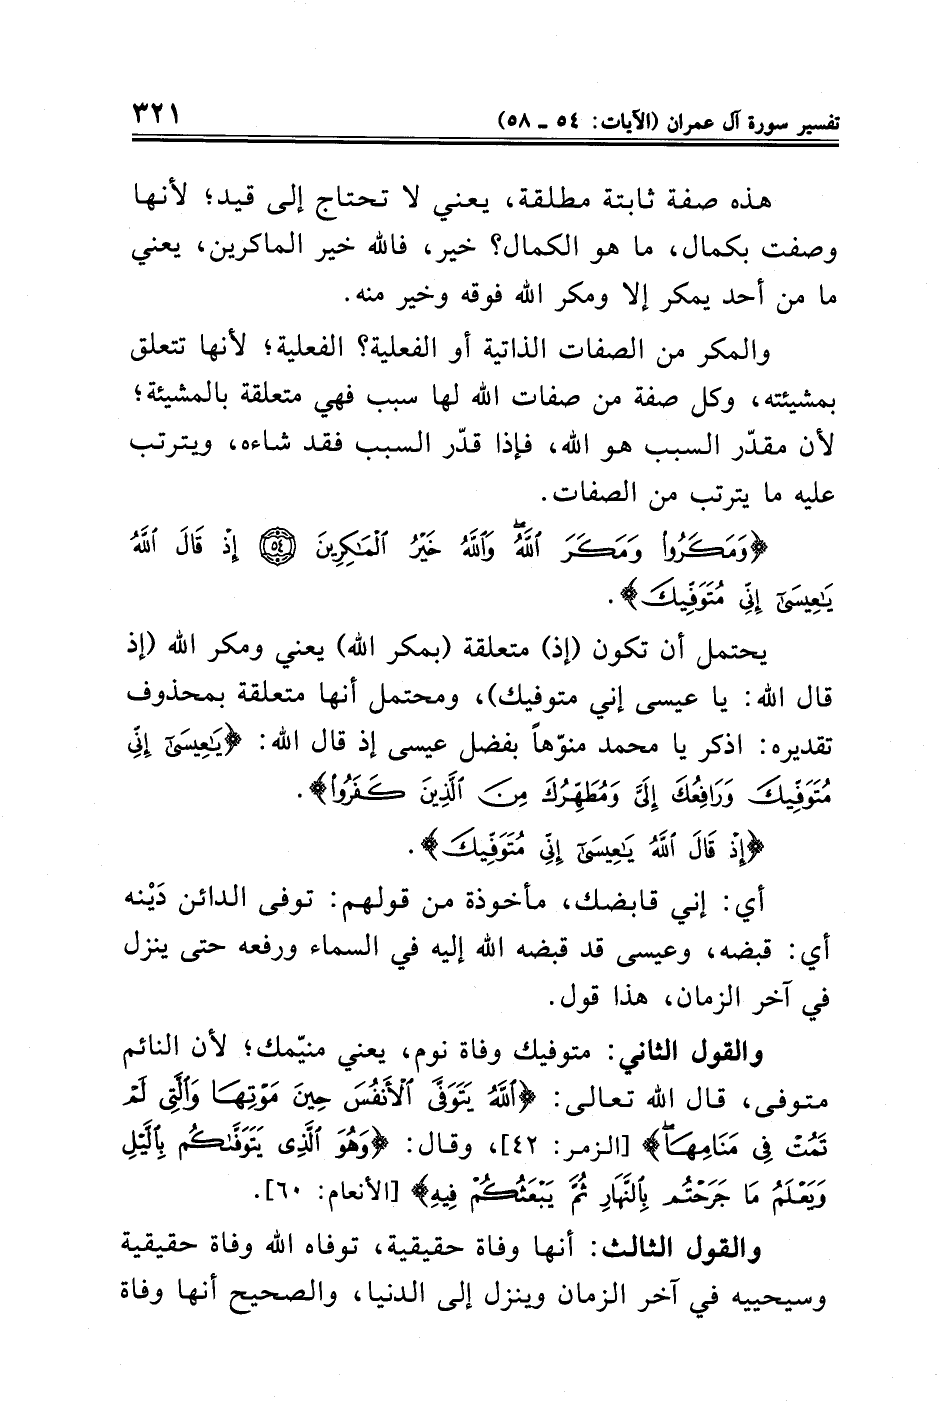 تفسير سورة آل عمران (الآيات: ٥٤ ـ ٥٨) ٣٢١
هذه صفة ثابتة مطلقة، يعني لا تحتاج إلى قيد؛ لأنها
وصفت بكمال، ما هو الكمال؟ خير، فالله خير الماكرين، يعني
ما من أحد يمكر إلا ومكر الله فوقه وخير منه.
والمكر من الصفات الذاتية أو الفعلية؟ الفعلية؛ لأنها تتعلق
بمشيئته، وكل صفة من صفات الله لها سبب فهي متعلقة بالمشيئة؛
لأن مقدّر السبب هو الله، فإذا قدّر السبب فقد شاءه، ويترتب
عليه ما يترتب من الصفات.
﴿وَمَكَرُوا۟ وَمَكَرَ ٱللَّهُۖ وَٱللَّهُ خَيْرُ ٱلْمَـٰكِرِينَ ۝٥٤ إِذْ قَالَ ٱللَّهُ
يَـٰعِيسَىٰٓ إِنِّى مُتَوَفِّيكَ﴾.
يحتمل أن تكون (إذ) متعلقة (بمكر الله) يعني ومكر الله (إذ
قال الله: يا عيسى إني متوفيك)، ومحتمل أنها متعلقة بمحذوف
تقديره: اذكر يا محمد منوّهاً بفضل عيسى إذ قال الله: ﴿يَـٰعِيسَىٰٓ إِنِّى
مُتَوَفِّيكَ وَرَافِعُكَ إِلَىَّ وَمُطَهِّرُكَ مِنَ ٱلَّذِينَ كَفَرُوا۟﴾.
﴿إِذْ قَالَ ٱللَّهُ يَـٰعِيسَىٰٓ إِنِّى مُتَوَفِّيكَ﴾.
أي: إني قابضك، مأخوذة من قولهم: توفى الدائن دَيْنه
أي: قبضه، وعيسى قد قبضه الله إليه في السماء ورفعه حتى ينزل
في آخر الزمان، هذا قول.
والقول الثاني: متوفيك وفاة نوم، يعني منيّمك؛ لأن النائم
متوفى، قال الله تعالى: ﴿ٱللَّهُ يَتَوَفَّى ٱلْأَنفُسَ حِينَ مَوْتِهَا وَٱلَّتِى لَمْ
تَمُتْ فِى مَنَامِهَاۖ﴾ [الزمر: ٤٢]، وقال: ﴿وَهُوَ ٱلَّذِى يَتَوَفَّىٰكُم بِٱلَّيْلِ
وَيَعْلَمُ مَا جَرَحْتُم بِٱلنَّهَارِ ثُمَّ يَبْعَثُكُمْ فِيهِ﴾ [الأنعام: ٦٠].
والقول الثالث: أنها وفاة حقيقية، توفاه الله وفاة حقيقية
وسيحييه في آخر الزمان وينزل إلى الدنيا، والصحيح أنها وفاة